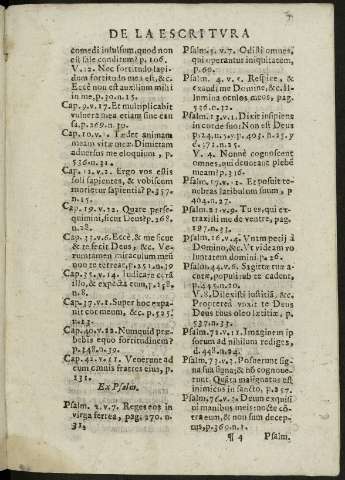 DE LA ESCRITVRA
comedi insulsum, quod non
est sale conditum? p. 106.
V. 12. Nec fortitudo lapi-
dum fortitudo mea est, &c.
Eccè non est auxilium mihi
in me, p. 30. n. 15.
Cap. 9. v. 17. Et multiplicabit
vulnera mea etiam sine cau
sa, p. 269. n. 30.
Cap. 10. v. 1. Tædet animam
meam vitæ meæ Dimittam
aduersus me eloquium, p.
536. n. 31.
Cap. 12. v. 2. Ergo vos estis
soli sapientes, & vobiscum
morietur sapientia? p. 357.
n. 15.
Cap. 19. v. 22. Quare perse-
quimini, sicut Deus? p. 268.
n. 28.
Cap. 33. v. 6. Eccè, & me sicut
& te fecit Deus, &c. Ve-
rumtamen miraculum meũ
non te terreat, p. 251. n. 19
Cap. 35. v. 14. Iudicare corã
illo, & expecta eum, p. 158.
n. 8.
Cap. 37. v. 1. Super hoc expa-
uit cor meum, &c. p. 525.
n. 13.
Cap. 40. v. 22. Nunquid præ-
bebis equo fortitudinem?
p. 148. n. 39.
Cap. 42. v. 11. Venerunt ad
eum omnis fratres eius, p.
131.
Ex Psalm.
Psalm. 2. v. 7. Reges eos in
virga ferrea, pag. 270. n.
31.
Psalm. 5. v. 7. Odisti omnes,
qui operantur iniquitatem,
p. 69.
Psalm. 4. v. 2. Respice, &
exaudi me Domine, &c. Il-
lumina oculos meos, pag.
536. n. 32.
Psalm. 13. v. 1. Dixit insipiens
in corde suo: Non est Deus
p. 24. n. 5. v. p. 403. n. 25. v
d. 171. n. 25.
V. 4. Nonnè cognoscent
omnes, qui deuorant plebẽ
meam? p. 316.
Psalm. 17. v. 12. Et posuit te-
nebras latibulum suum, p
404. n. 27.
Psalm. 21. v. 9. Tu es, qui ex-
traxisti me de ventre, pag.
197. n. 33.
Psalm. 26. v. 4. Vnam petij à
Domino, &c. Vt videam vo
luntatem domini. p. 26.
Psalm. 44. v. 6. Sagittæ tuæ a-
cutæ, populi sub te cadent,
p. 445. n. 20.
V. 8. Dilexisti iustitiã, &c.
Propterea vnxit te Deus
Deus tuus oleo lætitiæ, p.
537. n. 33.
Psalm. 72. v. 12. Imaginem ip
sorum ad nihilum rediges,
d. 448. n. 24.
Psalm. 73. v. 3. Posuerunt sig-
na sua signa; & nõ cognoue-
runt. Quãta malignatus est
inimicus in sancto, p. 257.
Psalm. 76. v. 3. Deum exquisi
ui manibus meis: nocte cõ-
tra eum, & non sum decep-
tus, p. 369. n. 1.
¶ 4
Psalm.